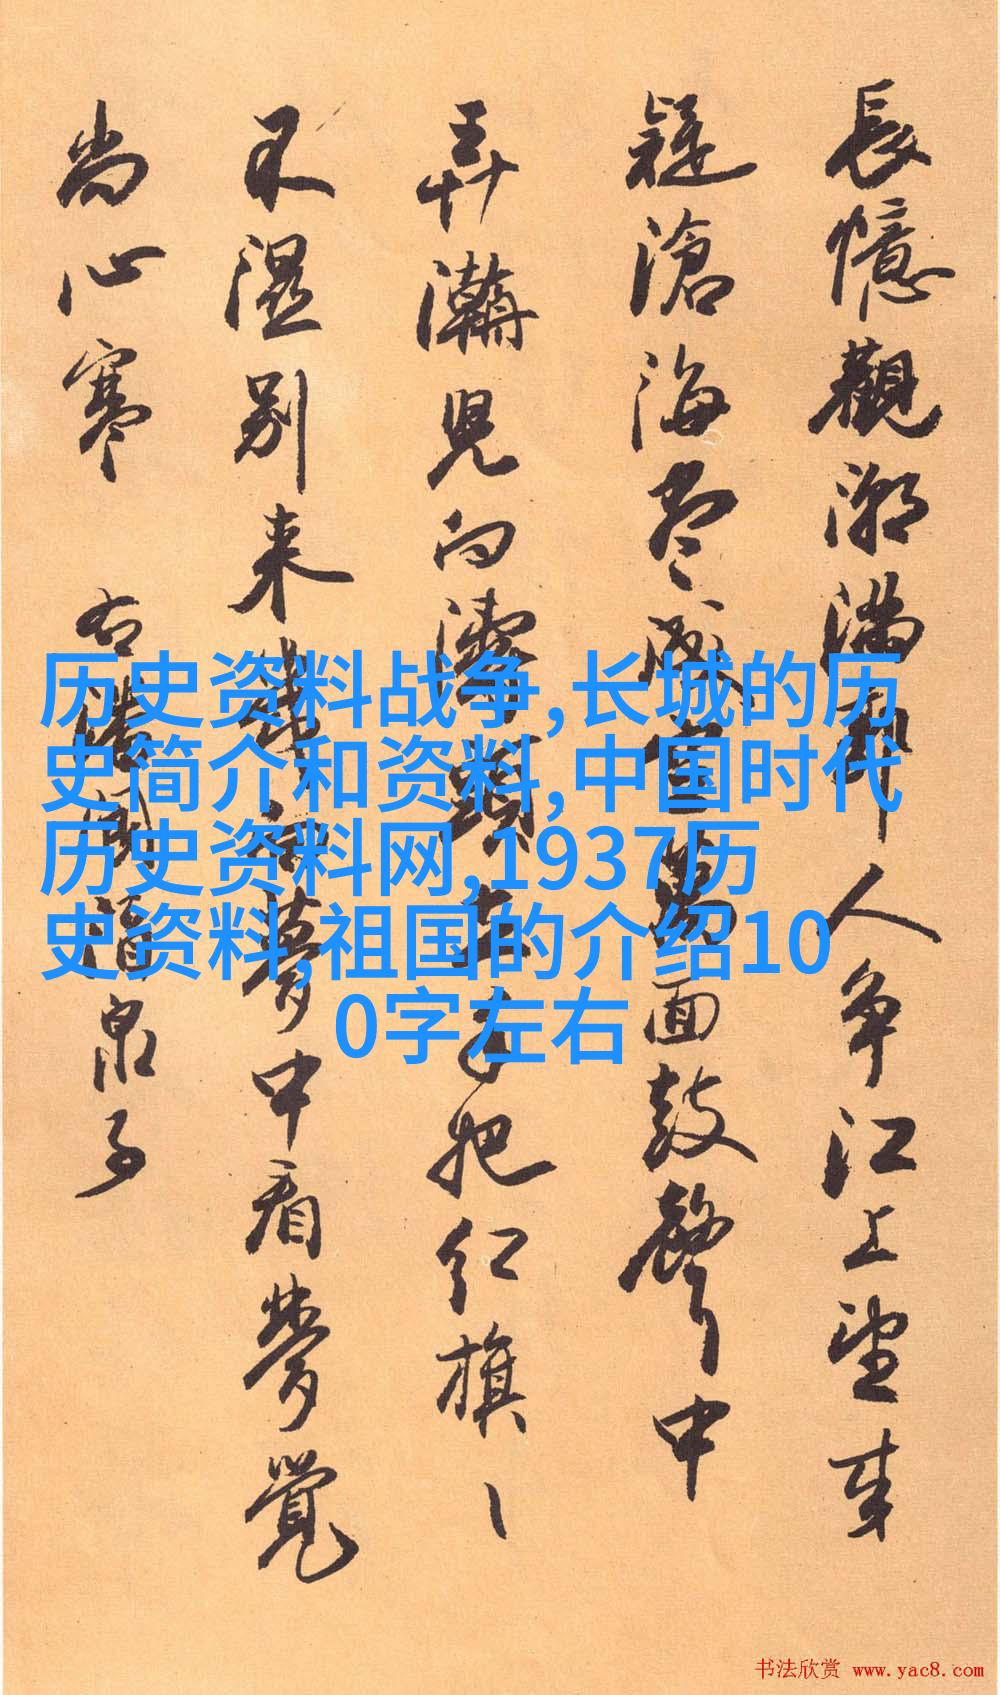 長憶觀潮滿郭人爭江上望来
疑滄海盡成空萬面鼓聲中
弄潮兒向濤頭立手把紅旗〻
不濕别来幾向夢中看夢覺
尚心寒 右潘閬酒泉子
历史资料战争,长城的历
史简介和资料,中国时代
历史资料网,1937历
史资料,祖国的介绍10
0字左右
书法欣赏 www.yac8.com